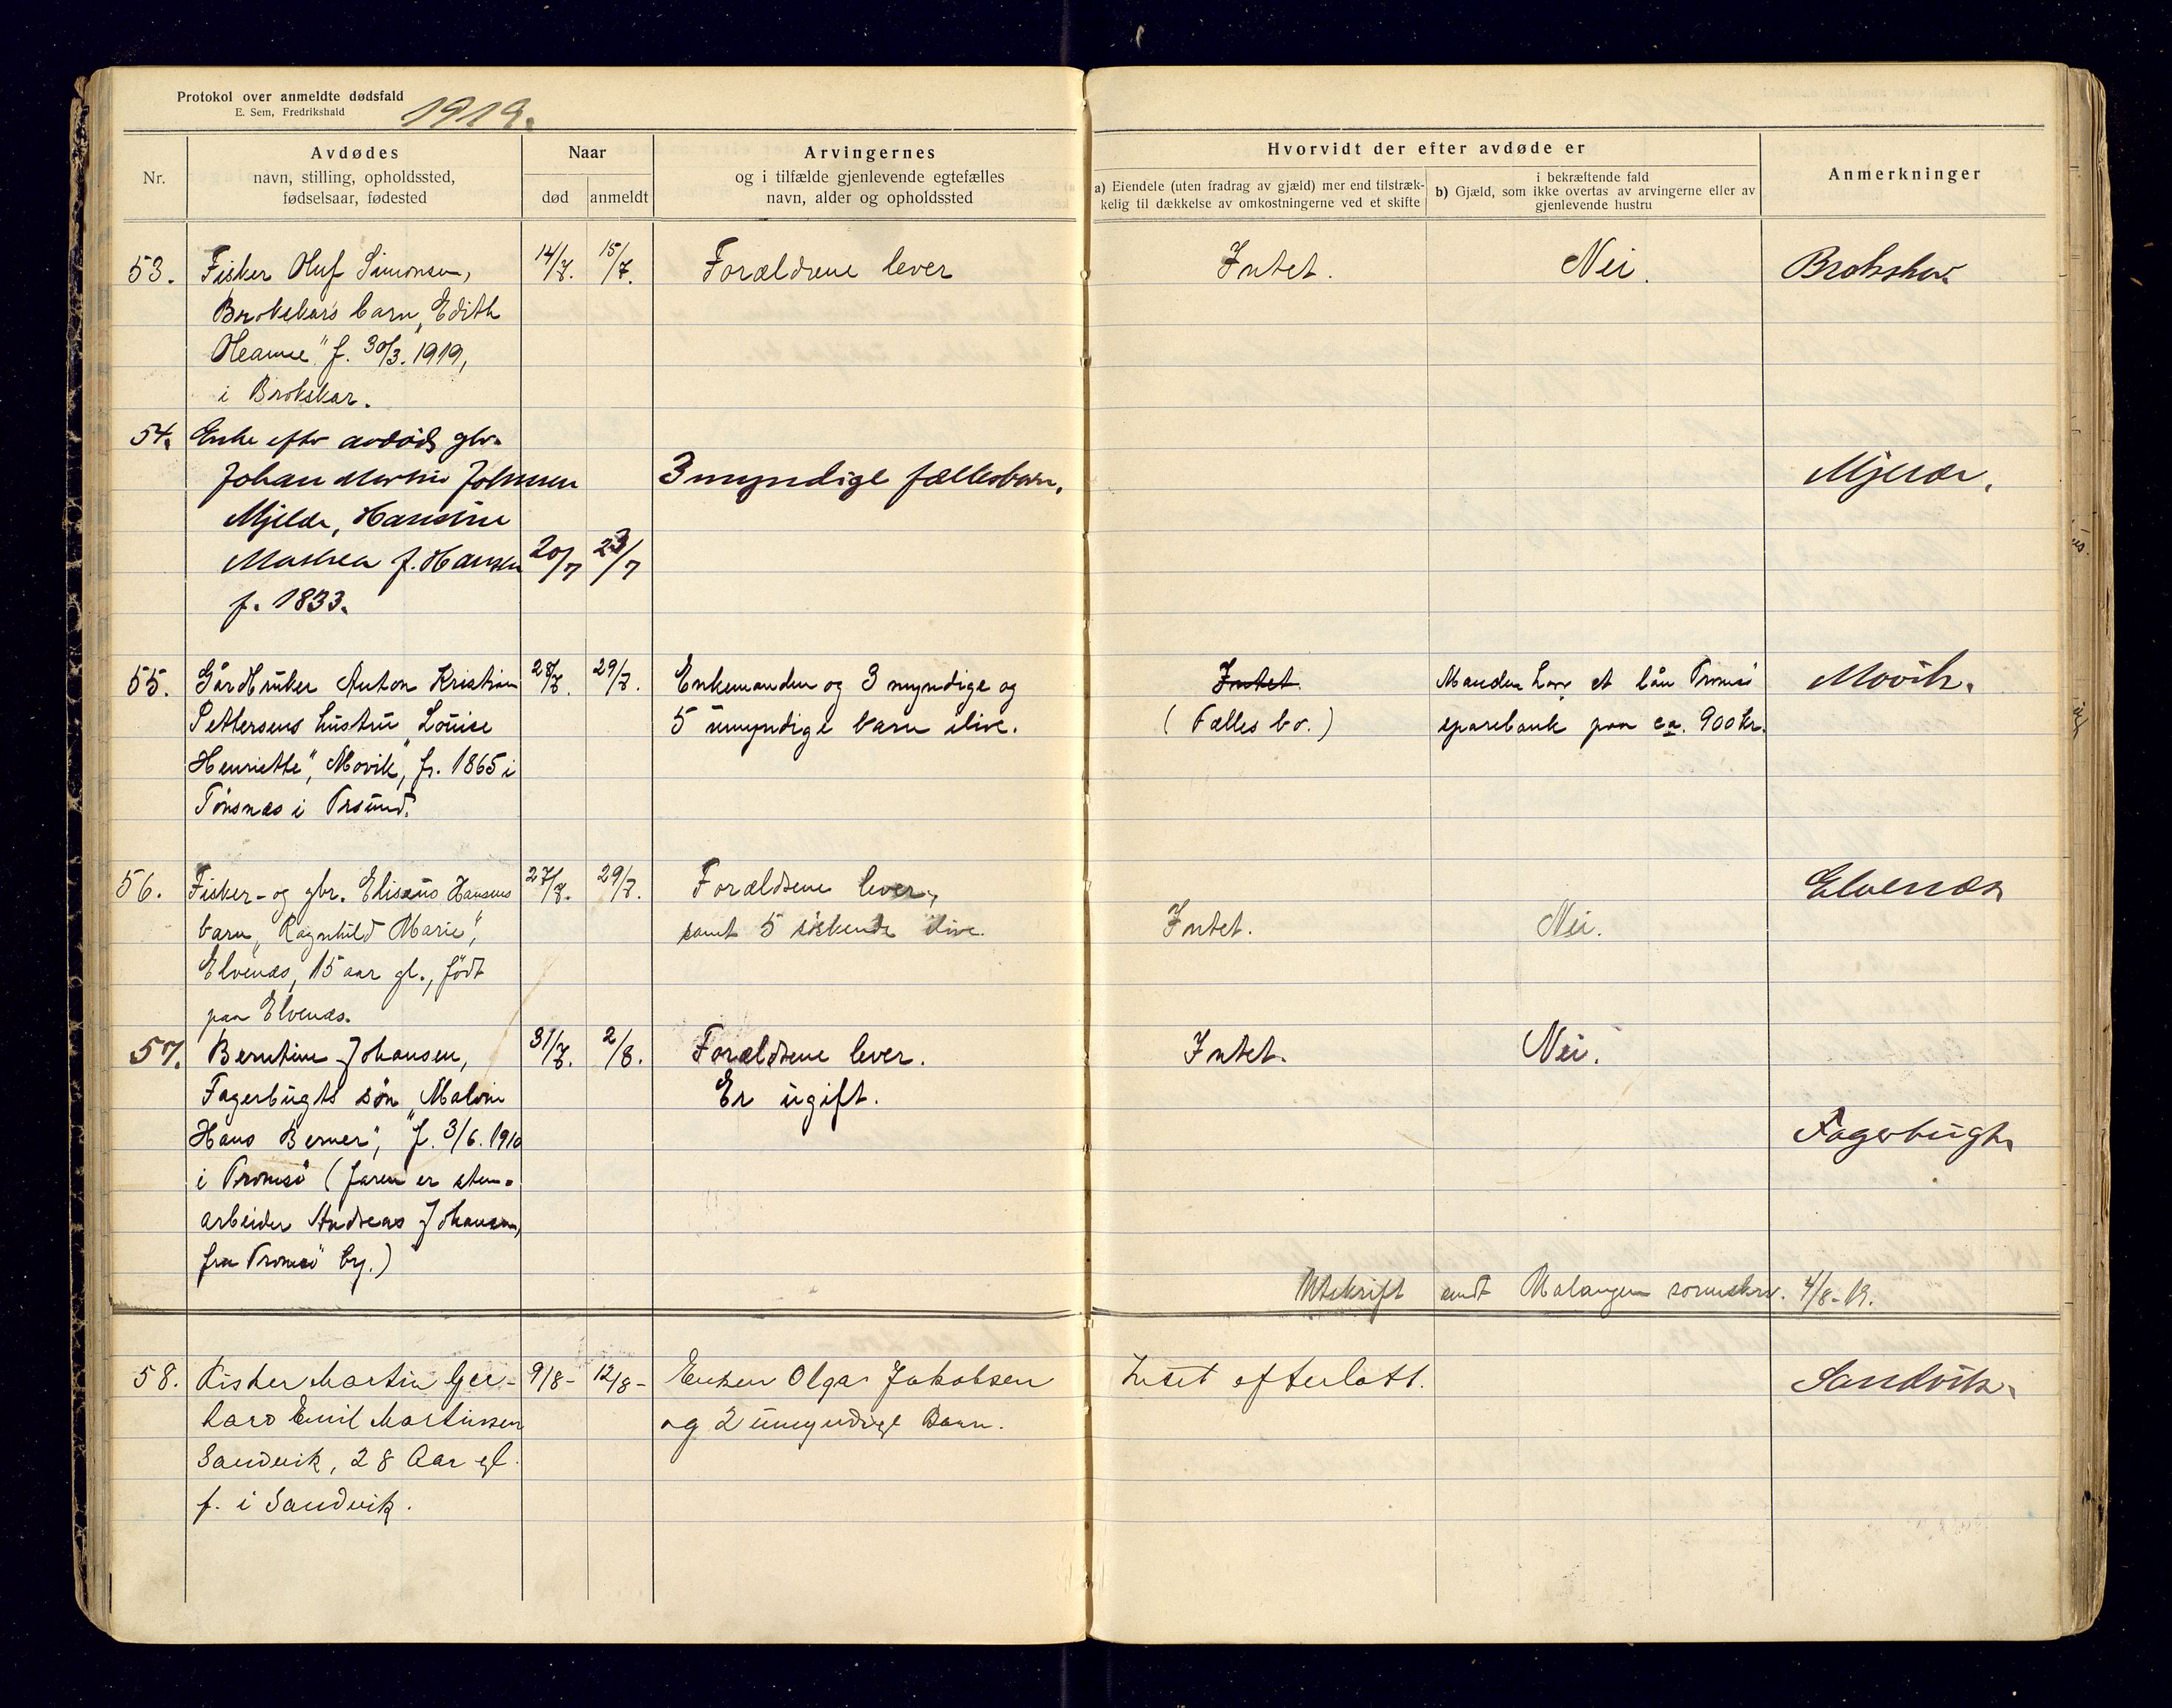 Protokol over anmeldte dødsfald
E. Sem, Fredrikshald
1919.
Nr.
Avdødes
navn, stilling, opholdssted,
fødselsaar, fødested
Naar
død
anmeldt
Arvingernes
og i tilfælde gjenlevende egtefælles
navn, alder og opholdssted
Hvorvidt der efter avdøde er
a) Eiendele (uten fradrag av gjæld) mer end tilstræk-
kelig til dækkelse av omkostningerne ved et skifte
i bekræftende fald
b) Gjæld, som ikke overtas av arvingerne eller av
gjenlevende hustru
Anmerkninger
53. Fisker Oluf Simonsen, 14/7. 15/7. Forældrene lever Intet. Nei. Brokskar.
Brokskars barn „Edith
f. 30/3. 1919,
i Brokskar.
54. Enke efter avdøde gbr.
Johan Martin Johnsen 3 myndige fællesbarn. Mjelde.
Mjelde, Hansine
f. Hansen 20/7 23/7
f. 1833.
55. Gårdbruker Anton Kristian 28/7. 29/7. Enkemanden og 3 myndige og Intet. Manden har et lån Tromsö Movik.
Pettersens hustru „Louise 5 umyndige barn ilive. (Fælles bo.) sparebank paa ca. 900 kr.
Henriette”, Movik, f. 1865 i
Tönsnæs i Trsund.
56. Fisker- og gbr. Elisæus Hansens 27/7. 29/7. Forældrene lever, Elvenæs
barn „Ragnhild Marie”, samt 5 söskende ilive. Intet. Nei.
Elvenæs, 15 aar gl., födt
paa Elvenæs.
57. Berntine Johansen, 31/7. 2/8. Forældrene lever. Intet. Nei.
Fagerbugts sön „Malvin Er ugift.
Hans Berner”, f. 3/6. 1910 Fagerbugt.
i Tromsö (faren er sten-
arbeider Andreas Johansen,
fra Tromsö by.)
Utskrift sendt Malangen sorenskr. 4/8-19.
58. Fisker Martin Ger- 9/8- 12/8- Enken Olga Jakobsen Intet efterlatt. Sandvik.
hard Emil Martinsen og 2 umyndige Barn.
Sandvik, 28 Aar gl.
f. i Sandvik.